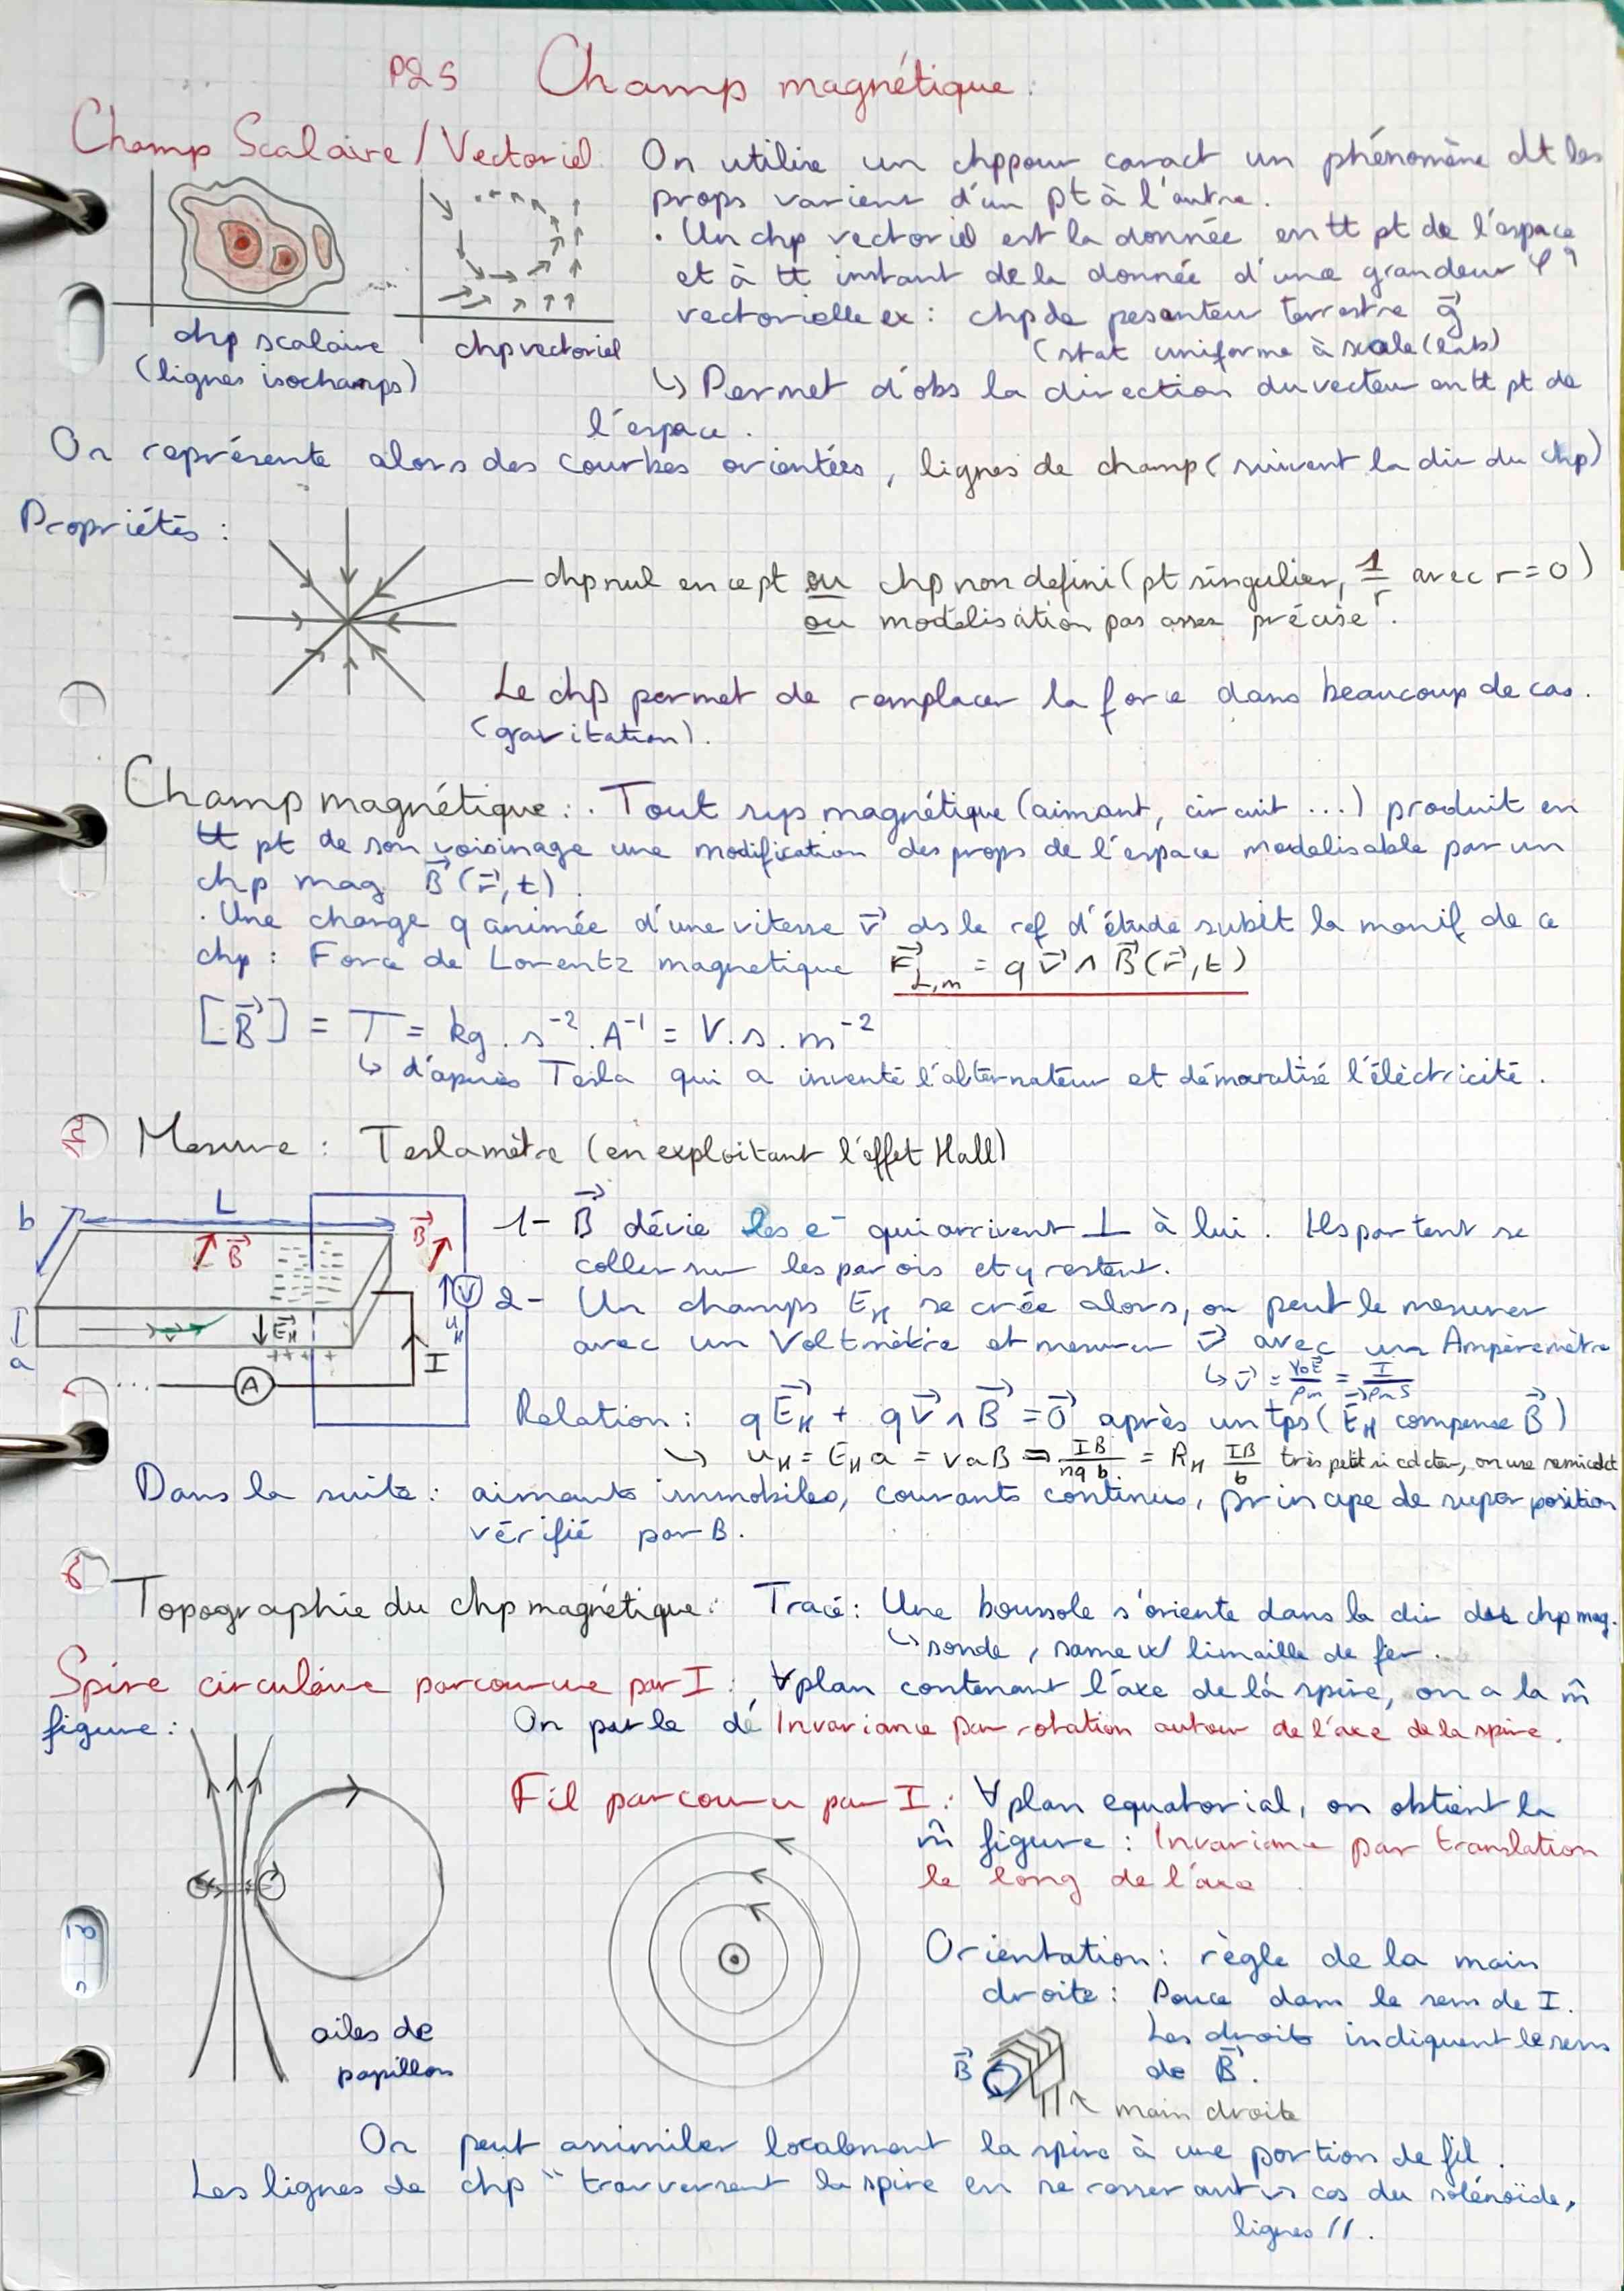 P25 Champ magnétique :
Champ Scalaire / Vectoriel
On utilise un chp pour caract un phénomène dt les
props varient d'un pt à l'autre.
. Un chp vectoriel est la donnée en tt pt de l'espace
et à tt instant de la donnée d'une grandeur φ
vectorielle ex : chp de pesanteur terrestre g⃗
(stat uniforme à scale (lab)
chp scalaire
(lignes isochamps)
chp vectoriel
↳ Permet d'obs la direction du vecteur en tt pt de
l'espace.
On représente alors des courbes orientées, lignes de champ (suivent la dir du chp)
Propriétés :
chp nul en ce pt ou chp non defini (pt singulier, 1/r avec r=0)
ou modélisation pas assez précise.
Le chp permet de remplacer la force dans beaucoup de cas.
(gravitation).
Champ magnétique : . Tout sys magnétique (aimant, circuit ...) produit en
tt pt de son voisinage une modification des props de l'espace modelisable par un
chp mag B⃗(r⃗,t).
. Une charge q animée d'une vitesse v⃗ ds le ref d'étude subit la manif de ce
chp : Force de Lorentz magnetique F⃗L,m = q v⃗ ∧ B⃗(r⃗,t)
[B⃗] = T = kg . s⁻² . A⁻¹ = V.s.m⁻²
↳ d'après Tesla qui a inventé l'alternateur et démocratisé l'éléctricité.
Mesure : Teslamètre (en exploitant l'effet Hall)
L
b
B⃗
B⃗
V
uH
a
v⃗
E⃗H
++++
I
A
1- B⃗ dévie les e⁻ qui arrivent ⊥ à lui. Ils partent se
coller sur les parois et y restent.
2- Un champs EH se crée alors, on peut le mesurer
avec un Voltmètre et mesurer v⃗ avec un Ampèremètre
Relation : qE⃗H + qv⃗ ∧ B⃗ = 0⃗ après un tps (E⃗H compense B⃗)
↳ uH = EH a = vaB = IB/nqb = RH IB/b très petit si cdcteur, on use semicdct
Dans la suite : aimants immobiles, courants continus, principe de superposition
vérifié par B.
Topographie du chp magnétique : Tracé : Une boussole s'oriente dans la dir du chp mag.
↳ sonde, same w/ limaille de fer.
Spire circulaire parcourue par I : ∀plan contenant l'axe de la spire, on a la m̂
figure : On parle de Invariance par rotation autour de l'axe de la spire.
Fil parcouru par I : ∀plan equatorial, on obtient la
m̂ figure : Invariance par translation
le long de l'axe
Orientation : règle de la main
droite : Pouce dans le sens de I.
Les droits indiquent le sens
de B⃗.
B⃗
main droite
ailes de
papillon
On peut assimiler localement la spire à une portion de fil.
Les lignes de chp " traversent la spire en se resserrant vs cas du solénoïde,
lignes //.